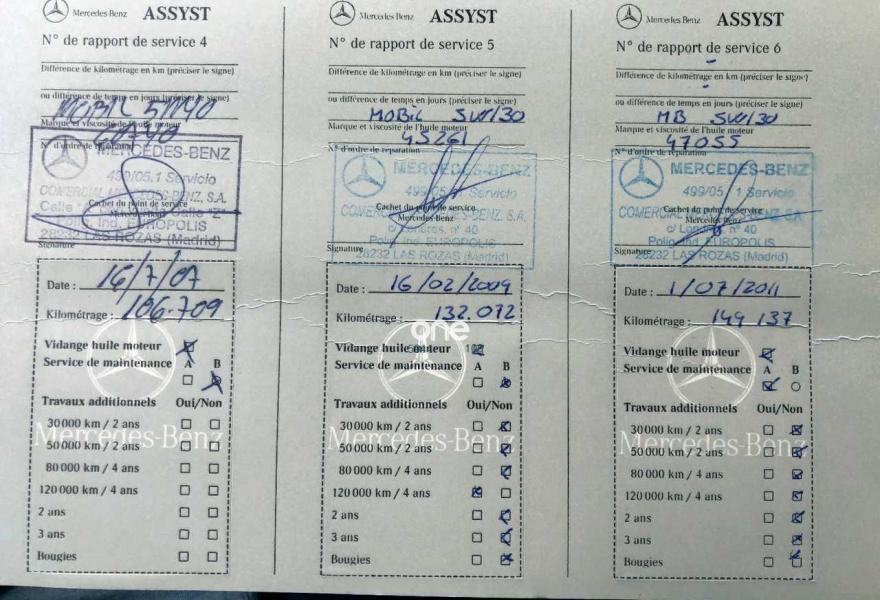 Mercedes-Benz ASSYST
N° de rapport de service 4
Différence de kilométrage en km (préciser le signe)
ou différence de temps en jours (préciser le signe)
MOBIL 5W40
Marque et viscosité de l'huile moteur
N° d'ordre de réparation
MERCEDES-BENZ
Servicio
COMERCIAL MERCEDES-BENZ, S.A.
Cachet du point de service
Mercedes-Benz
Ind. EUROPOLIS
28232 LAS ROZAS (Madrid)
Signature
Date : 16/7/07
Kilométrage : 106.709
Vidange huile moteur
Service de maintenance A B
Travaux additionnels Oui/Non
30 000 km / 2 ans
50 000 km / 2 ans
80 000 km / 4 ans
120 000 km / 4 ans
2 ans
3 ans
Bougies
Mercedes-Benz
Mercedes-Benz ASSYST
N° de rapport de service 5
Différence de kilométrage en km (préciser le signe)
ou différence de temps en jours (préciser le signe)
MOBIL 5W/30
Marque et viscosité de l'huile moteur
45261
N° d'ordre de réparation
MERCEDES-BENZ
499/05.1 Servicio
Cachet du point de service
Mercedes-Benz
c/ Londres, nº 40
Polig. Ind. EUROPOLIS
28232 LAS ROZAS (Madrid)
Signature
Date : 16/02/2009
Kilométrage : 132.072
one
Vidange huile moteur
Service de maintenance A B
Travaux additionnels Oui/Non
30 000 km / 2 ans
50 000 km / 2 ans
80 000 km / 4 ans
120 000 km / 4 ans
2 ans
3 ans
Bougies
Mercedes-Benz
Mercedes-Benz ASSYST
N° de rapport de service 6
Différence de kilométrage en km (préciser le signe)
ou différence de temps en jours (préciser le signe)
MB 5W/30
Marque et viscosité de l'huile moteur
47055
N° d'ordre de réparation
MERCEDES-BENZ
499/05.1 Servicio
Cachet du point de service
Mercedes-Benz
c/ Londres, nº 40
Polig. Ind. EUROPOLIS
28232 LAS ROZAS (Madrid)
Signature
Date : 1/07/2011
Kilométrage : 149 137
Vidange huile moteur
Service de maintenance A B
Travaux additionnels Oui/Non
30 000 km / 2 ans
50 000 km / 2 ans
80 000 km / 4 ans
120 000 km / 4 ans
2 ans
3 ans
Bougies
Mercedes-Benz